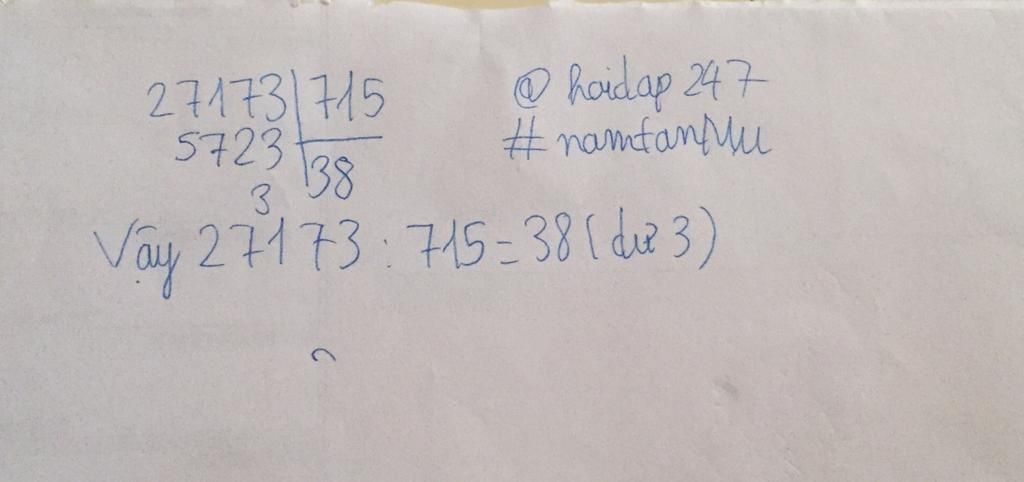 27173 715
5723 38
3
Vậy 27173 : 715 = 38 (dư 3)
@hoidap 247
#